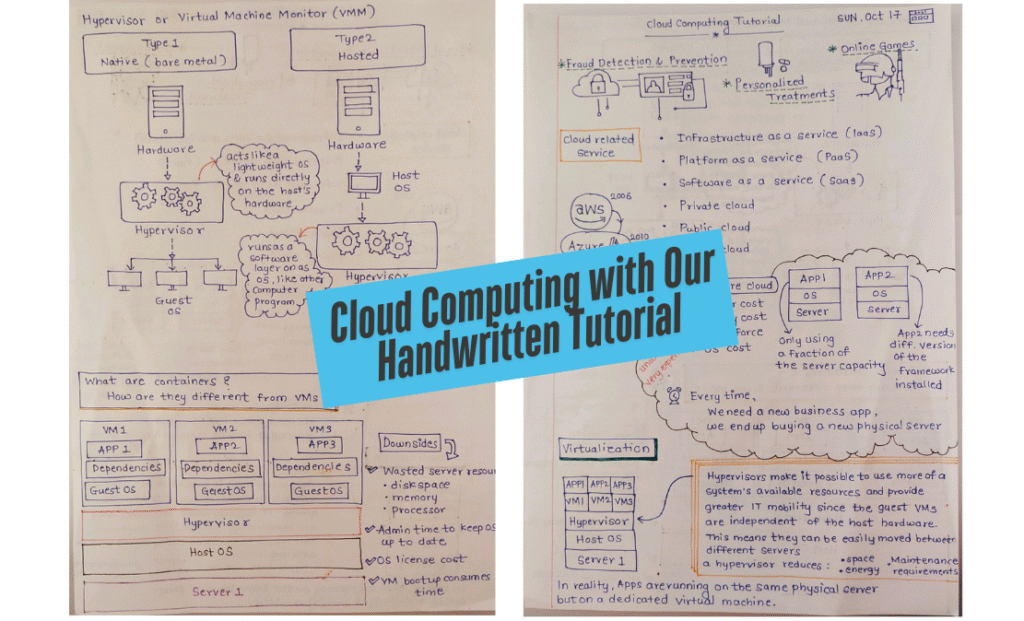 Hypervisor or Virtual Machine Monitor (VMM)
Type 1
Native (bare metal)
Type2
Hosted
Hardware
Hardware
acts like a
lightweight OS
& runs directly
on the host's
hardware
Host
OS
Hypervisor
runs as a
software
layer on as
OS, like other
Computer
program
Hypervisor
Guest
OS
What are containers?
How are they different from VMs
VM1
APP 1
Dependencies
Guest OS
VM2
APP2
Dependencies
Guest OS
VM3
APP3
Dependencies
Guest OS
Hypervisor
Host OS
Server 1
Downsides
Wasted server
• disk space
• memory
• processor
Admin time to keep OS
up to date
OS license cost
VM bootup consumes
time
Cloud Computing with Our
Handwritten Tutorial
Cloud Computing Tutorial
SUN, Oct 17
* Fraud Detection & Prevention
* Personalized
Treatments
* Online Games
Cloud related
Service
• Infrastructure as a service (IaaS)
• Platform as a service (PaaS)
• Software as a service (SaaS)
• Private cloud
• Public cloud
cloud
aws
2006
Azure
2010
cloud
cost
cost
Force
cost
APP1
OS
Server
APP2
OS
Server
Only using
a fraction of
the server capacity
App2 needs
diff. version
of the
framework
installed
very
Every time,
We need a new business app,
we end up buying a new physical server
Virtualization
APP1 APP2 APP3
VM1 VM2 VM3
Hypervisor
Host OS
Server 1
Hypervisors make it possible to use more of a
system's available resources and provide
greater IT mobility since the guest VMs
are independent of the host hardware.
This means they can be easily moved between
different servers
a hypervisor reduces: • space • Maintenance
• energy requirements
In reality, Apps are running on the same physical server
but on a dedicated virtual machine.